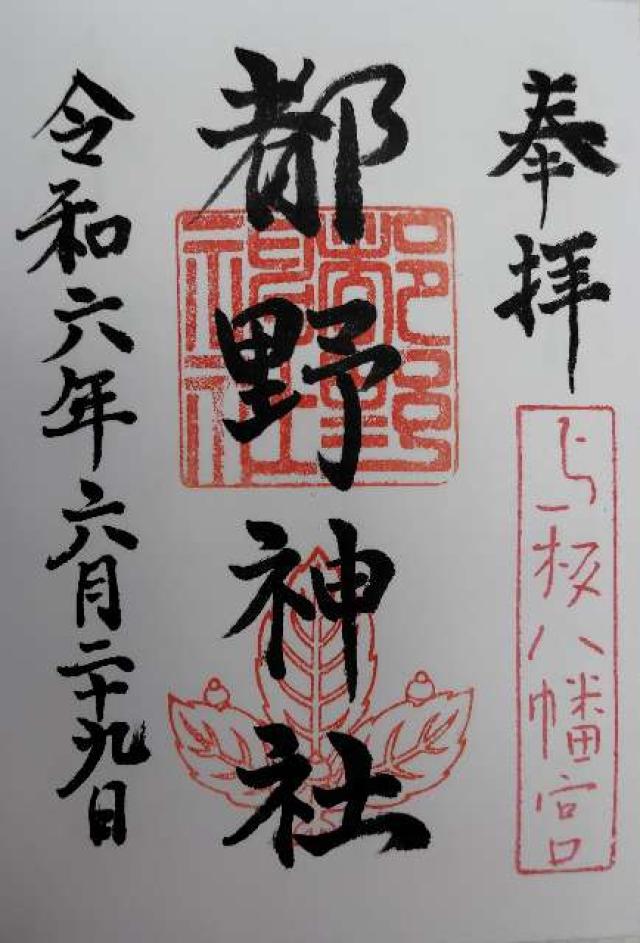 奉拝
与板八幡宮
都野神社
都野
神社
令和六年六月二十九日